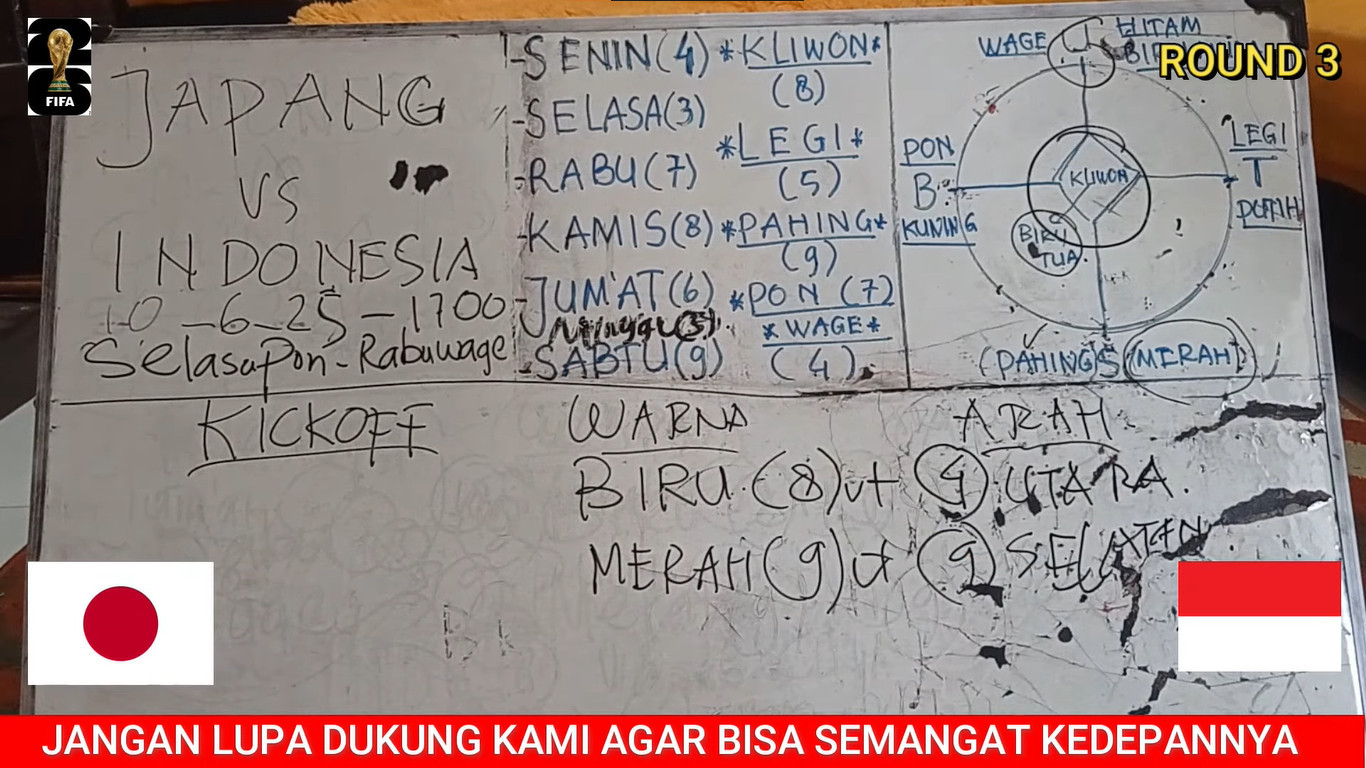 FIFA
JAPANG
VS
INDONESIA
10-6-25-1700
Selasapon-Rabuwage
-SENIN(4)
-SELASA(3)
-RABU(7)
-KAMIS(8)
-JUM'AT(6)
Minggu(5)
-SABTU(9)
*KLIWON*
(8)
*LEGI*
(5)
*PAHING*
(9)
*PON (7)
*WAGE*
(4)
WAGE U HITAM
ROUND 3
PON
B
KUNING
KLIWON
BIRU
TUA
LEGI
T
PUTIH
(PAHING)S(MERAH)
KICKOFF
WARNA
ARAH
BIRU (8) UTARA.
MERAH(9) (9) SELATAN
JANGAN LUPA DUKUNG KAMI AGAR BISA SEMANGAT KEDEPANNYA